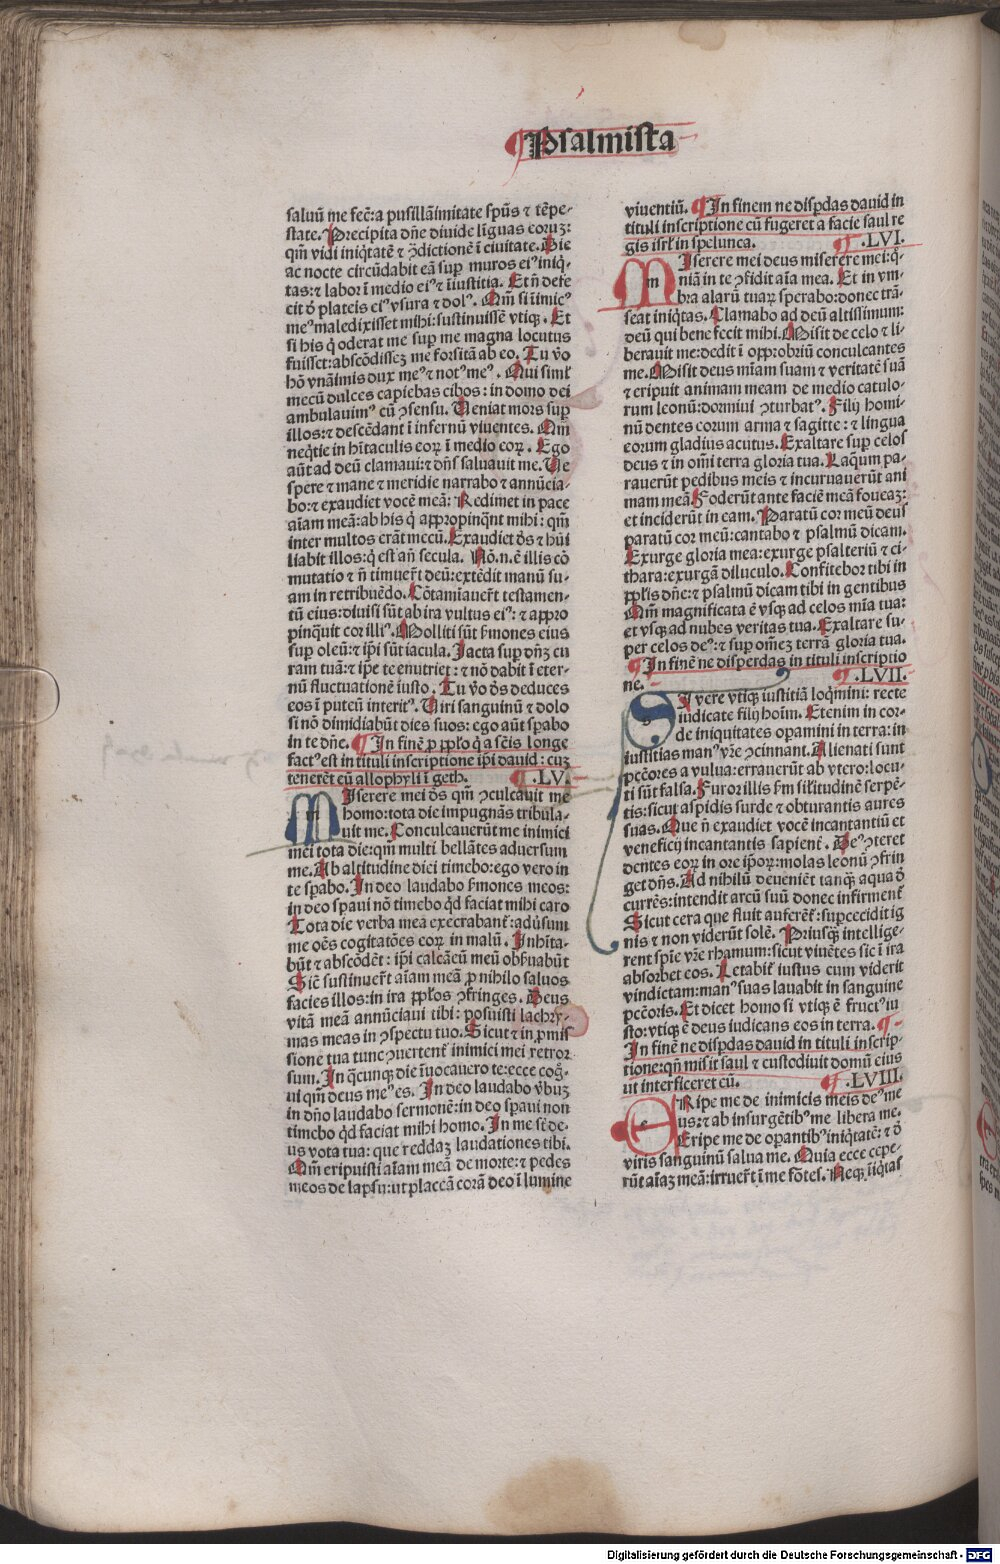 Psalmista
saluū me fec̄:a pusillāimitate spūs ⁊ tēpe-
state. Precipita dn̄e diuide linguas eoruꝫ:
qm̄ vidi iniq̄tatē ⁊ ꝯdictionē ī ciuitate. Die
ac nocte circūdabit eā suꝑ muros eiꝰ iniq̄-
tas:⁊ labor ī medio eiꝰ ⁊ iniustitia. Et n̄ defe
cit ď plateis eiꝰ vsura ⁊ dolꝰ. Qm̄ si īimicꝰ
meꝰ maledixisset mihi:sustinuissē vtiqꝫ. Et
si his q̇ oderat me suꝑ me magna locutus
fuisset:abscōdisseꝫ me forsitā ab eo. Tu v̇o
hō vnāimis dux meꝰ ⁊ notꝰ meꝰ. Qui siml̄
mecū dulces capiebas cibos:in domo dei
ambulauimꝰ cū ꝯsensu. Veniat mors suꝑ
illos:⁊ descēdant ī infernū viuentes. Qm̄
neq̄tie in hītaculis eoꝝ ī medio eoꝝ. Ego
aūt ad deū clamaui:⁊ dn̄s saluauit me. Ve
spere ⁊ mane ⁊ meridie narrabo ⁊ annūcia-
bo:⁊ exaudiet vocē meā: Redimet in pace
aīam meā:ab his q̇ appropinq̄nt mihi:qm̄
inter multos erāt mecū. Exaudiet ds̄ ⁊ hūi
liabit illos:q̇ est an̄ secula. Nō.n.ē illis cō
mutatio ⁊ n̄ timuer̄t deū:extēdit manū su-
am in retribuēdo. Cōtamiauer̄t testamen-
tū eius:diuisi sūt ab ira vultus eiꝰ:⁊ appro
pinq̄uit cor illiꝰ. Molliti sūt ẜmones eius
suꝑ oleū:⁊ ip̄i sūt iacula. Jacta suꝑ dn̄ꝫ cu
ram tuā:⁊ ip̄e te enutriet:⁊ nō dabit ī eter-
nū fluctuationē iusto. Tu v̇o ds̄ deduces
eos ī puteū interitꝰ. Viri sanguinū ⁊ dolo
si nō dimidiabūt dies suos:ego aūt sꝑabo
in te dn̄e. ¶ In finē ꝓ pp̄lo q̇ a sc̄is longe
factꝰ est in tituli inscriptione ip̄i dauid:cuꝫ
tenerēt eū allophyli ī geth. ¶ .LV.
MIserere mei ds̄ qm̄ ꝯculcauit me
homo:tota die impugnās tribula-
uit me. Conculcauerūt me inimici
mei tota die:qm̄ multi bellātes aduersum
me. Ab altitudine diei timebo:ego vero in
te sꝑabo. In deo laudabo ẜmones meos:
in deo sꝑaui nō timebo qd̄ faciat mihi caro
Tota die verba mea execrabant̄:aduersum
me oēs cogitatōes eoꝝ in malū. Inhīta-
būt ⁊ abscōdēt:ip̄i calcāeū meū obẜuabūt
Sic̄ sustinuer̄t aīam meā ꝓ nihilo saluos
facies illos:in ira pp̄los ꝯfringes. Deus
vitā meā annūciaui tibi:posuisti lachry-
mas meas in ꝯspectu tuo. Sicut ⁊ in ꝓmis
sione tua tunc ꝯuertent̄ inimici mei retror
sum. In q̄cunqꝫ die īuocauero te:ecce cog-
ui qm̄ deus meꝰ es. In deo laudabo v̇buꝫ
in dn̄o laudabo sermonē:in deo sꝑaui non
timebo qd̄ faciat mihi homo. In me sūt de-
us vota tua:que reddaꝫ laudationes tibi.
Qm̄ eripuisti aīam meā de morte:⁊ pedes
meos de lapsu:ut placeā corā deo ī lumine
viuentiū. ¶ In finem ne disꝑdas dauid in
tituli inscriptione cū fugeret a facie saul re
gis isrl̄ in spelunca. ¶ .LVI.
MIserere mei deus miserere mei:q̄-
niā in te ꝯfidit aīa mea. Et in vm-
bra alarū tuaꝝ sperabo:donec trā-
seat iniq̄tas. Clamabo ad deū altissimum:
deū qui bene fecit mihi. Misit de celo ⁊ li-
berauit me:dedit ī opprobriū conculcantes
me. Misit deus mīam suam ⁊ veritatē suā
⁊ eripuit animam meam de medio catulo-
rum leonū:dormiui ꝯturbatꝰ. Filij homi-
nū dentes eorum arma ⁊ sagitte:⁊ lingua
eorum gladius acutus. Exaltare suꝑ celos
deus ⁊ in om̄i terra gloria tua. Laqueum pa-
rauerūt pedibus meis ⁊ incuruauerūt ani
mam meā. Foderūt ante faciē meā foueaꝫ:
et inciderūt in eam. Paratū cor meū deus
paratū cor meū:cantabo ⁊ psalmū dicam.
Exurge gloria mea:exurge psalteriū ⁊ ci-
thara:exurgā diluculo. Confitebor tibi in
pp̄lis dn̄e:⁊ psalmū dicam tibi in gentibus
Qm̄ magnificata ē vsqꝫ ad celos mīa tua:
et vsqꝫ ad nubes veritas tua. Exaltare su-
per celos deꝰ:⁊ suꝑ omeꝫ terrā gloria tua.
¶ In finē ne disperdas in tituli inscriptio
ne. ¶ .LVII.
SI vere vtiqꝫ iustitiā loq̄mini:recte
iudicate filij hoīm. Etenim in cor-
de iniquitates opamini in terra:in
iustitias manꝰ vr̄e ꝯcinnant. Alienati sunt
pc̄cōres a vulua:errauerūt ab vtero:locu-
ti sūt falsa. Furor illis ẜm sil̄itudinē serpē-
tis:sicut aspidis surde ⁊ obturantis aures
suas. Que n̄ exaudiet vocē incantantiū et
venefici incantantis sapient̄. Deꝰ ꝯteret
dentes eoꝝ in ore ip̄oꝝ:molas leonū ꝯfrin
get dn̄s. Ad nihilū deueniēt tanqꝫ aqua ď
currēs:intendit arcū suū donec infirment̄
Sicut cera que fluit auferēt̄:suꝑcecidit ig
nis ⁊ non viderūt solē. Priusqꝫ intellige-
rent spīe vr̄e rhamum:sicut viuētes sic ī ira
absorbet eos. Letabit̄ iustus cum viderit
vindictam:manꝰ suas lauabit in sanguine
pc̄cōris. Et dicet homo si vtiqꝫ ē fructꝰ iu
sto:vtiqꝫ ē deus iudicans eos in terra. ¶
In finē ne disꝑdas dauid in tituli inscrip-
tione:qn̄ misit saul ⁊ custodiuit domū eius
ut interficeret eū. ¶ .LVIII.
ERipe me de inimicis meis deꝰ me
us:⁊ ab insurgētibꝰ me libera me.
Eripe me de oꝑantibꝰ iniq̄tatē:⁊ ď
viris sanguinū salua me. Quia ecce cepe-
rūt aīaꝫ meā:irruer̄t ī me fōtes. Neqꝫ īiq̄tas
Digitalisierung gefördert durch die Deutsche Forschungsgemeinschaft - DFG